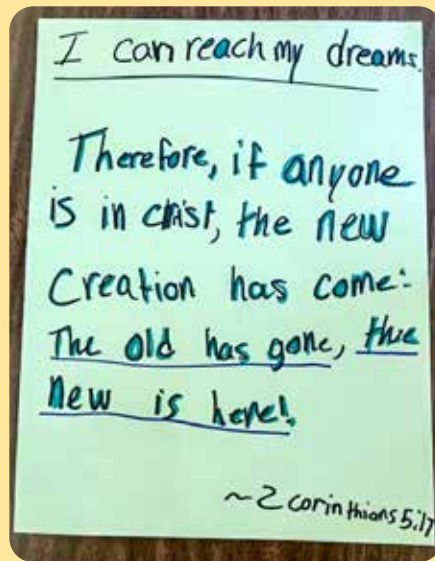 I can reach my dreams.
Therefore, if anyone
is in christ, the new
Creation has come:
The old has gone, the
new is here!
~2 corinthians 5:17